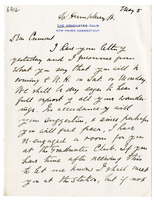 May 8
THE GRADUATES CLUB
NEW HAVEN CONNECTICUT
I had your letter
yesterday and I presume from
what you say that you will be
coming to N. H. on Sat or Monday.
We shall be happy to hear a
full report of all your wander-
ings. In accordance with
your suggestion, & since perhaps
you will feel freer, I have
engaged a room for you
at the Graduates Club. If you
have time after receiving this
to let me know I shall meet
you at the station, but if not